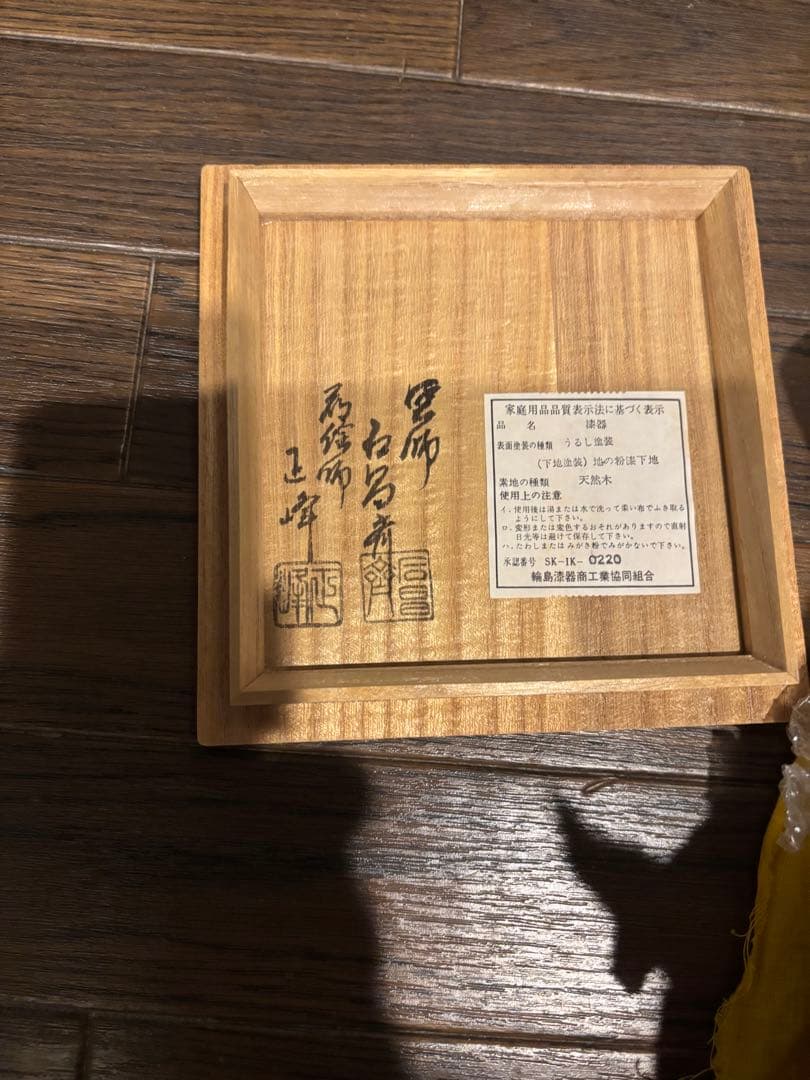 塗師
蒔絵師
正峰
家庭用品品質表示法に基づく表示
品 名 漆器
表面塗装の種類 うるし塗装
(下地塗装) 地の粉漆下地
素地の種類 天然木
使用上の注意
イ. 使用後は湯または水で洗って柔い布でふき取るようにして下さい。
ロ. 変形または変色するおそれがありますので直射日光等は避けて保存して下さい。
ハ. たわしまたは みがき粉でみがかないで下さい。
承認番号 SK-1K-0220
輪島漆器商工業協同組合